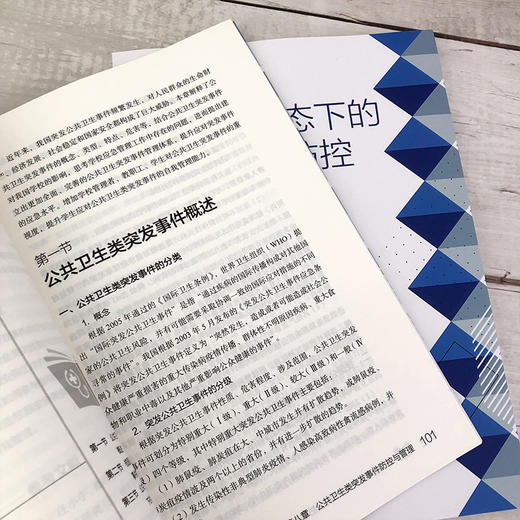 近年来，我国突发公共卫生事件频繁发生，对人民群众的生命财
产、经济发展、社会稳定和国家安全都构成了巨大威胁。本章解释了公
共卫生类突发事件的概念、类型、特点、危害等，结合公共卫生突发事件
对我国学校的影响，思考学校应急管理工作中存在的问题，进而提出建
立出更加全面、完善的公共卫生突发事件管理体系，提升应对突发事件
的应急水平。增加学校管理者、教职工、学生对公共卫生突发事件的重
视度，提升学生应对公共卫生类突发事件的自我管理能力。
第一节
公共卫生类突发事件概述
一、公共卫生类突发事件的分类
1. 概念
根据 2005 年通过的《国际卫生条例》，世界卫生组织（WHO）提
出“国际突发公共卫生事件”是指“通过疾病的国际传播构成对其他国
家的公共卫生风险，并有可能需要采取协调一致的国际应对措施的不同
寻常的事件”。我国根据 2003 年 5 月发布的《突发公共卫生事件应急条
例》将突发公共卫生事件定义为“突然发生，造成或者可能造成社会公
众健康严重损害的重大传染病疫情传播、群体性不明原因疾病、重大食
物和职业中毒以及其他严重影响公众健康的事件”。
2. 突发公共卫生事件的分级
根据突发公共卫生事件性质、危害程度、涉及范围，公共卫生突发
事件可划分为特别重大（Ⅰ级）、重大（Ⅱ级）、较大（Ⅲ级）和一般（Ⅳ
级）四个等级，其中特别重大突发公共卫生事件主要包括：
（1）肺鼠疫、肺炭疽在大、中城市发生并有扩散趋势，或肺鼠疫、
炭疽疫情波及两个以上的省份，并有进一步扩散的趋势。
（2）发生传染性非典型肺炎疫情、人感染高致病性禽流感病例，并
101
八章 公共卫生类突发事件防控与管理
态下的
控
第一节
第二节
第三节